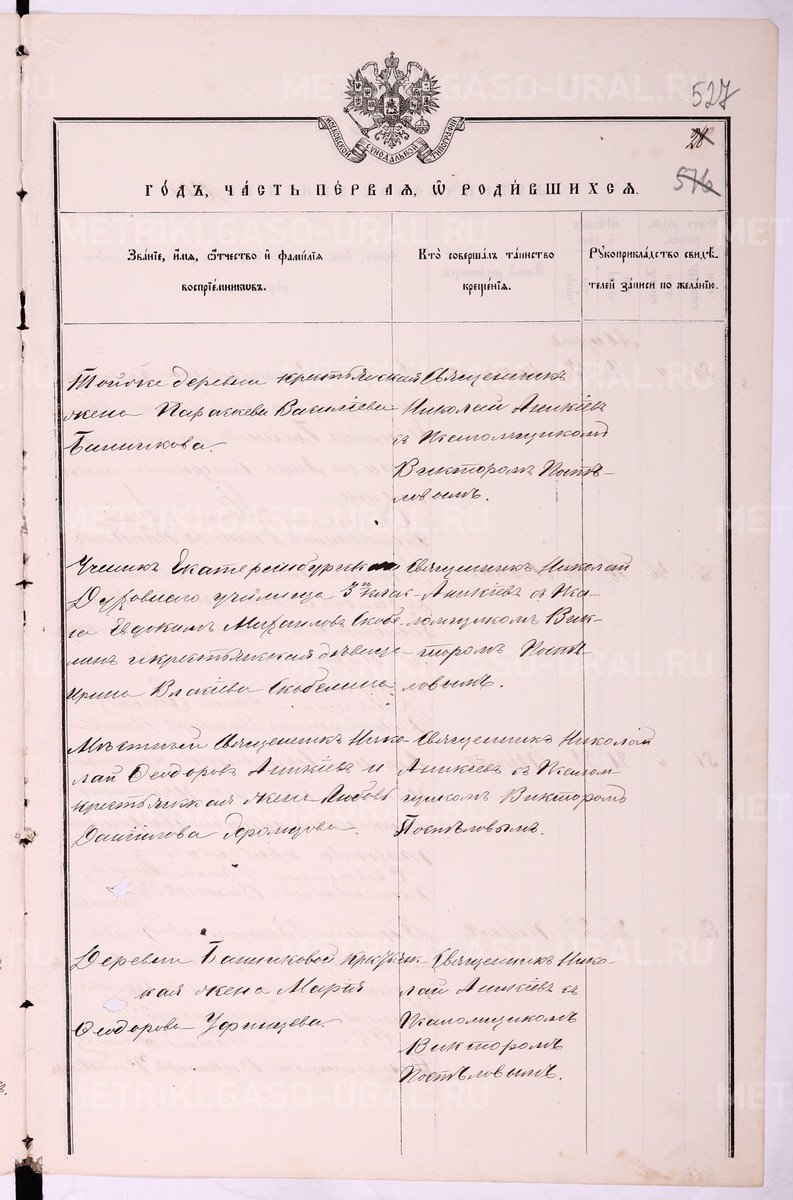 527
28
576
МОСКОВСКОЙ СѴНОДАЛЬНОЙ ТИПОГРАФІИ
ГО́ДЪ, ЧА́СТЬ ПЕ́РВАЯ, Ѽ РОДИ́ВШИХСЯ.
Зва́нїе, и́мя, ѻ҆́тчество и҆ фами́лїя
воспрїе́мникѡвъ.
Кто̀ соверша́лъ та́инство
креще́нїя.
Рꙋкоприкла́дство свидѣ́-
телей за́писи по жела́нїю.
Тойже деревни крестьянская
жена Параскева Василіева
Банникова.
Священникъ
Николай Аникіевъ
съ Псаломщикомъ
Викторомъ Поспѣ-
ловымъ.
Ученикъ Екатеринбургскаго
Духовнаго училища 3го клас-
са Евдокимъ Михаиловъ Скобе-
линъ и крестьянская дѣвица
Ирина Власіева Скобелина
Священникъ Николай
Аникіевъ съ Пса-
ломщикомъ Вик-
торомъ Поспѣ-
ловымъ.
Мѣстный Священникъ Нико-
лай Ѳеодоровъ Аникіевъ и
крестьянская жена Любовь
Даніилова
Священникъ Николай
Аникіевъ съ Псалом-
щикомъ Викторомъ
Поспѣловымъ.
Деревни Банниковой крестьянс-
кая жена Марія
Ѳеодорова Уфинцева.
Священникъ Нико-
лай Аникіевъ съ
Псаломщикомъ
Викторомъ
Поспѣловымъ.
METRIKI.GASO-URAL.RU